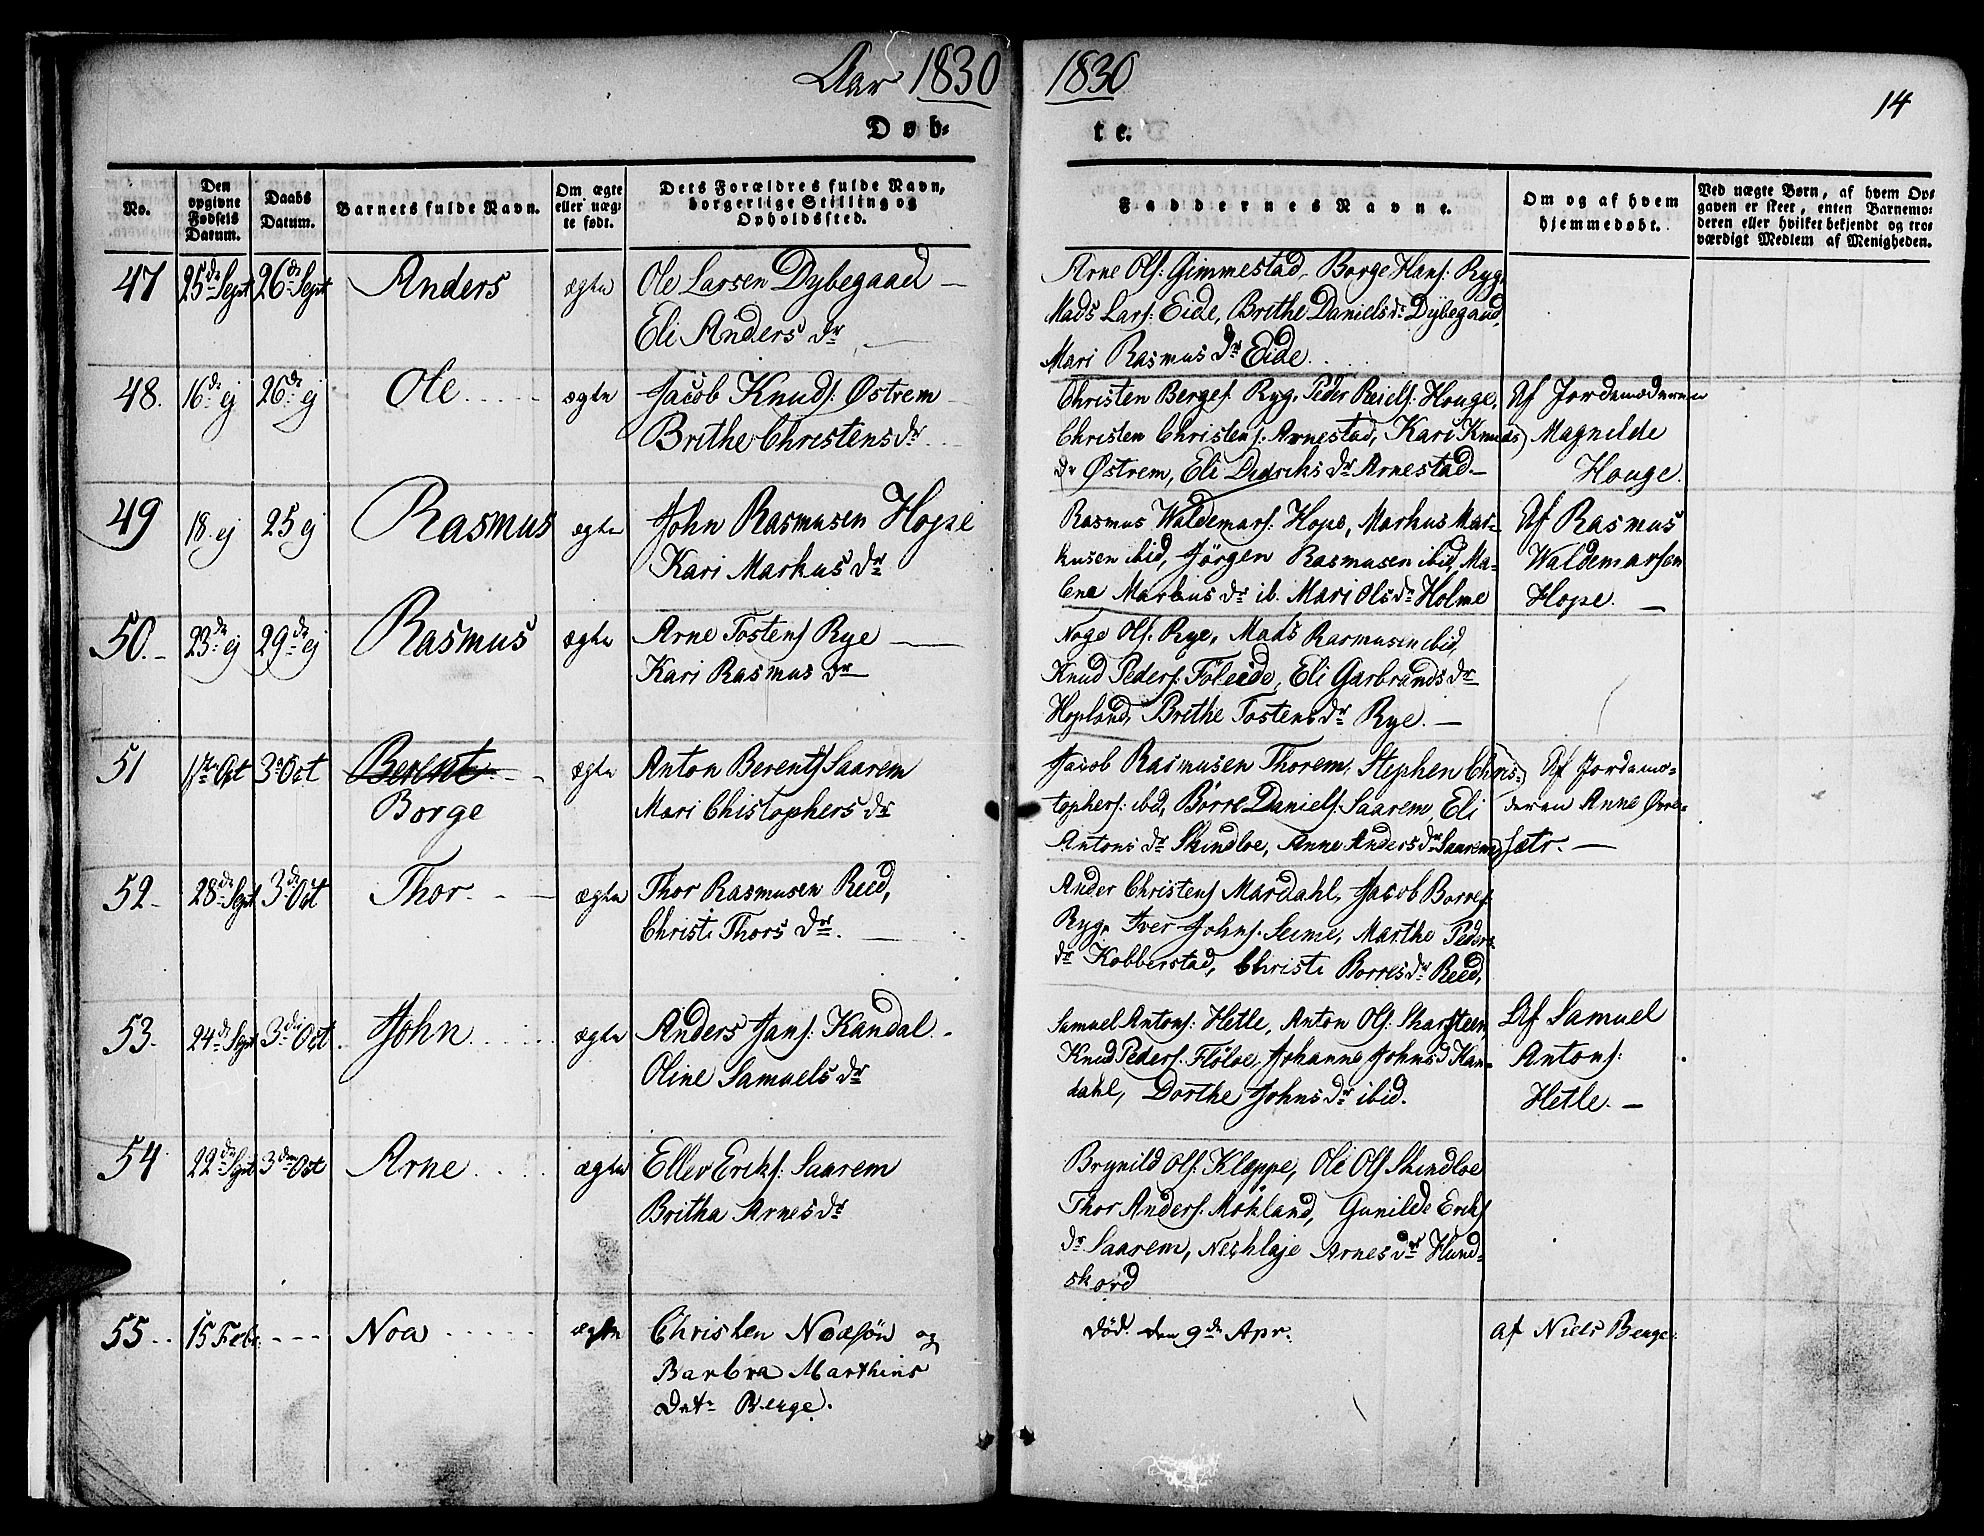 Aar 1830
1830
14
Døb-
te.
No.
Den opgivne Fødsels Datum.
Daabs Datum.
Barnets fulde Navn.
Om ægte eller uægte født.
Dets Forældres fulde Navn, borgerlige Stilling og Opholdssted.
Faddernes Navne.
Om og af hvem hjemmedøbt.
Ved uægte Børn, af hvem Opgaven er skeet, enten Barnemoderen eller hvilket bekjendt og troværdigt Medlem af Menigheden.
47 25de Sept 26de Sept Anders ægte Ole Larsen Dybegaad —
Eli Anders dr —
Arne Ols: Gimmestad, Borge Hans: Ryg,
Mads Lars: Eide, Brithe Daniels dr Dybegaad,
Mari Rasmus dr Eide.
48. 16de ej 26de ej Ole ægte Jacob Knuds: Østrem
Brithe Christens dr
Christen Berges: Ryg, Peder Houge,
Christen Christens: Arnestad, Kari Knuds
dr Østrem, Eli Didriks dr Arnestad —
Af Jordemoderen
Magnilde
Houge.
49 18. ej 25 ej Rasmus ægte John Rasmusen Hope
Kari Markus dr
Rasmus Waldemars: Hope, Markus Mar-
kusen ibid, Jörgen Rasmusen ibid, Ma-
lena Markus dr ib. Mari Ols dr Holme
Af Rasmus
Waldemarsen
Hope. —
50. 23de ej 29de ej Rasmus ægte Arne Tostens Rye —
Kari Rasmus dr
Ols: Rye, Mads Rasmusen ibid,
Knud Peders: Föleide, Eli Garbrands dr
Hopland, Brithe Tostens dr Rye. —
51 1ste Oct 3 Oct Berent
Borge
ægte Anton Berents Saarem
Mari Chistophers dr
Jacob Rasmusen Thorem, Stephen Chris-
tophers: ibid, Börre Daniels: Saarem, Eli
Antons dr Skindloe, Anne Anders dr Saarem,
Af Jordemo-
deren Anne Øvre-
sætr. —
52. 28de Sept 3de Oct Thor. ægte Thor Rasmusen Reed,
Christi Thors dr. —
Ander Christens Mardahl, Jacob Borres
Ryg, Iver Johns: Seime, Marthe Peders
dr Kobberstad, Christi Borres dr Reed,
53. 24de Sept 3die Oct. John ægte Anders Jans: Kandal.
Oline Samuels dr
Samuel Antons: Hetle, Anton Ols: Skarsteen,
Knud Peders: Flöloe, Johanne Johns d Kan-
dahl, Dorthe Johns dr ibid.
Af Samuel
Antons:
Hetle. —
54 22de Sept 3die Oct Arne ægte Ellev Eriks: Saarem
Britha Arnes dr
Brynild Ols: Kleppe, Ole Ols Skindloe
Thor Anders: Mökland, Gunilde Eriks
dr Saarem, Arnes dr Hund-
skord
55 15 Febr. Noa ægte Christen Noasön og
Barbra Marthins
Datr Berge.
död. den 9de Apr.
af Niels Berge.